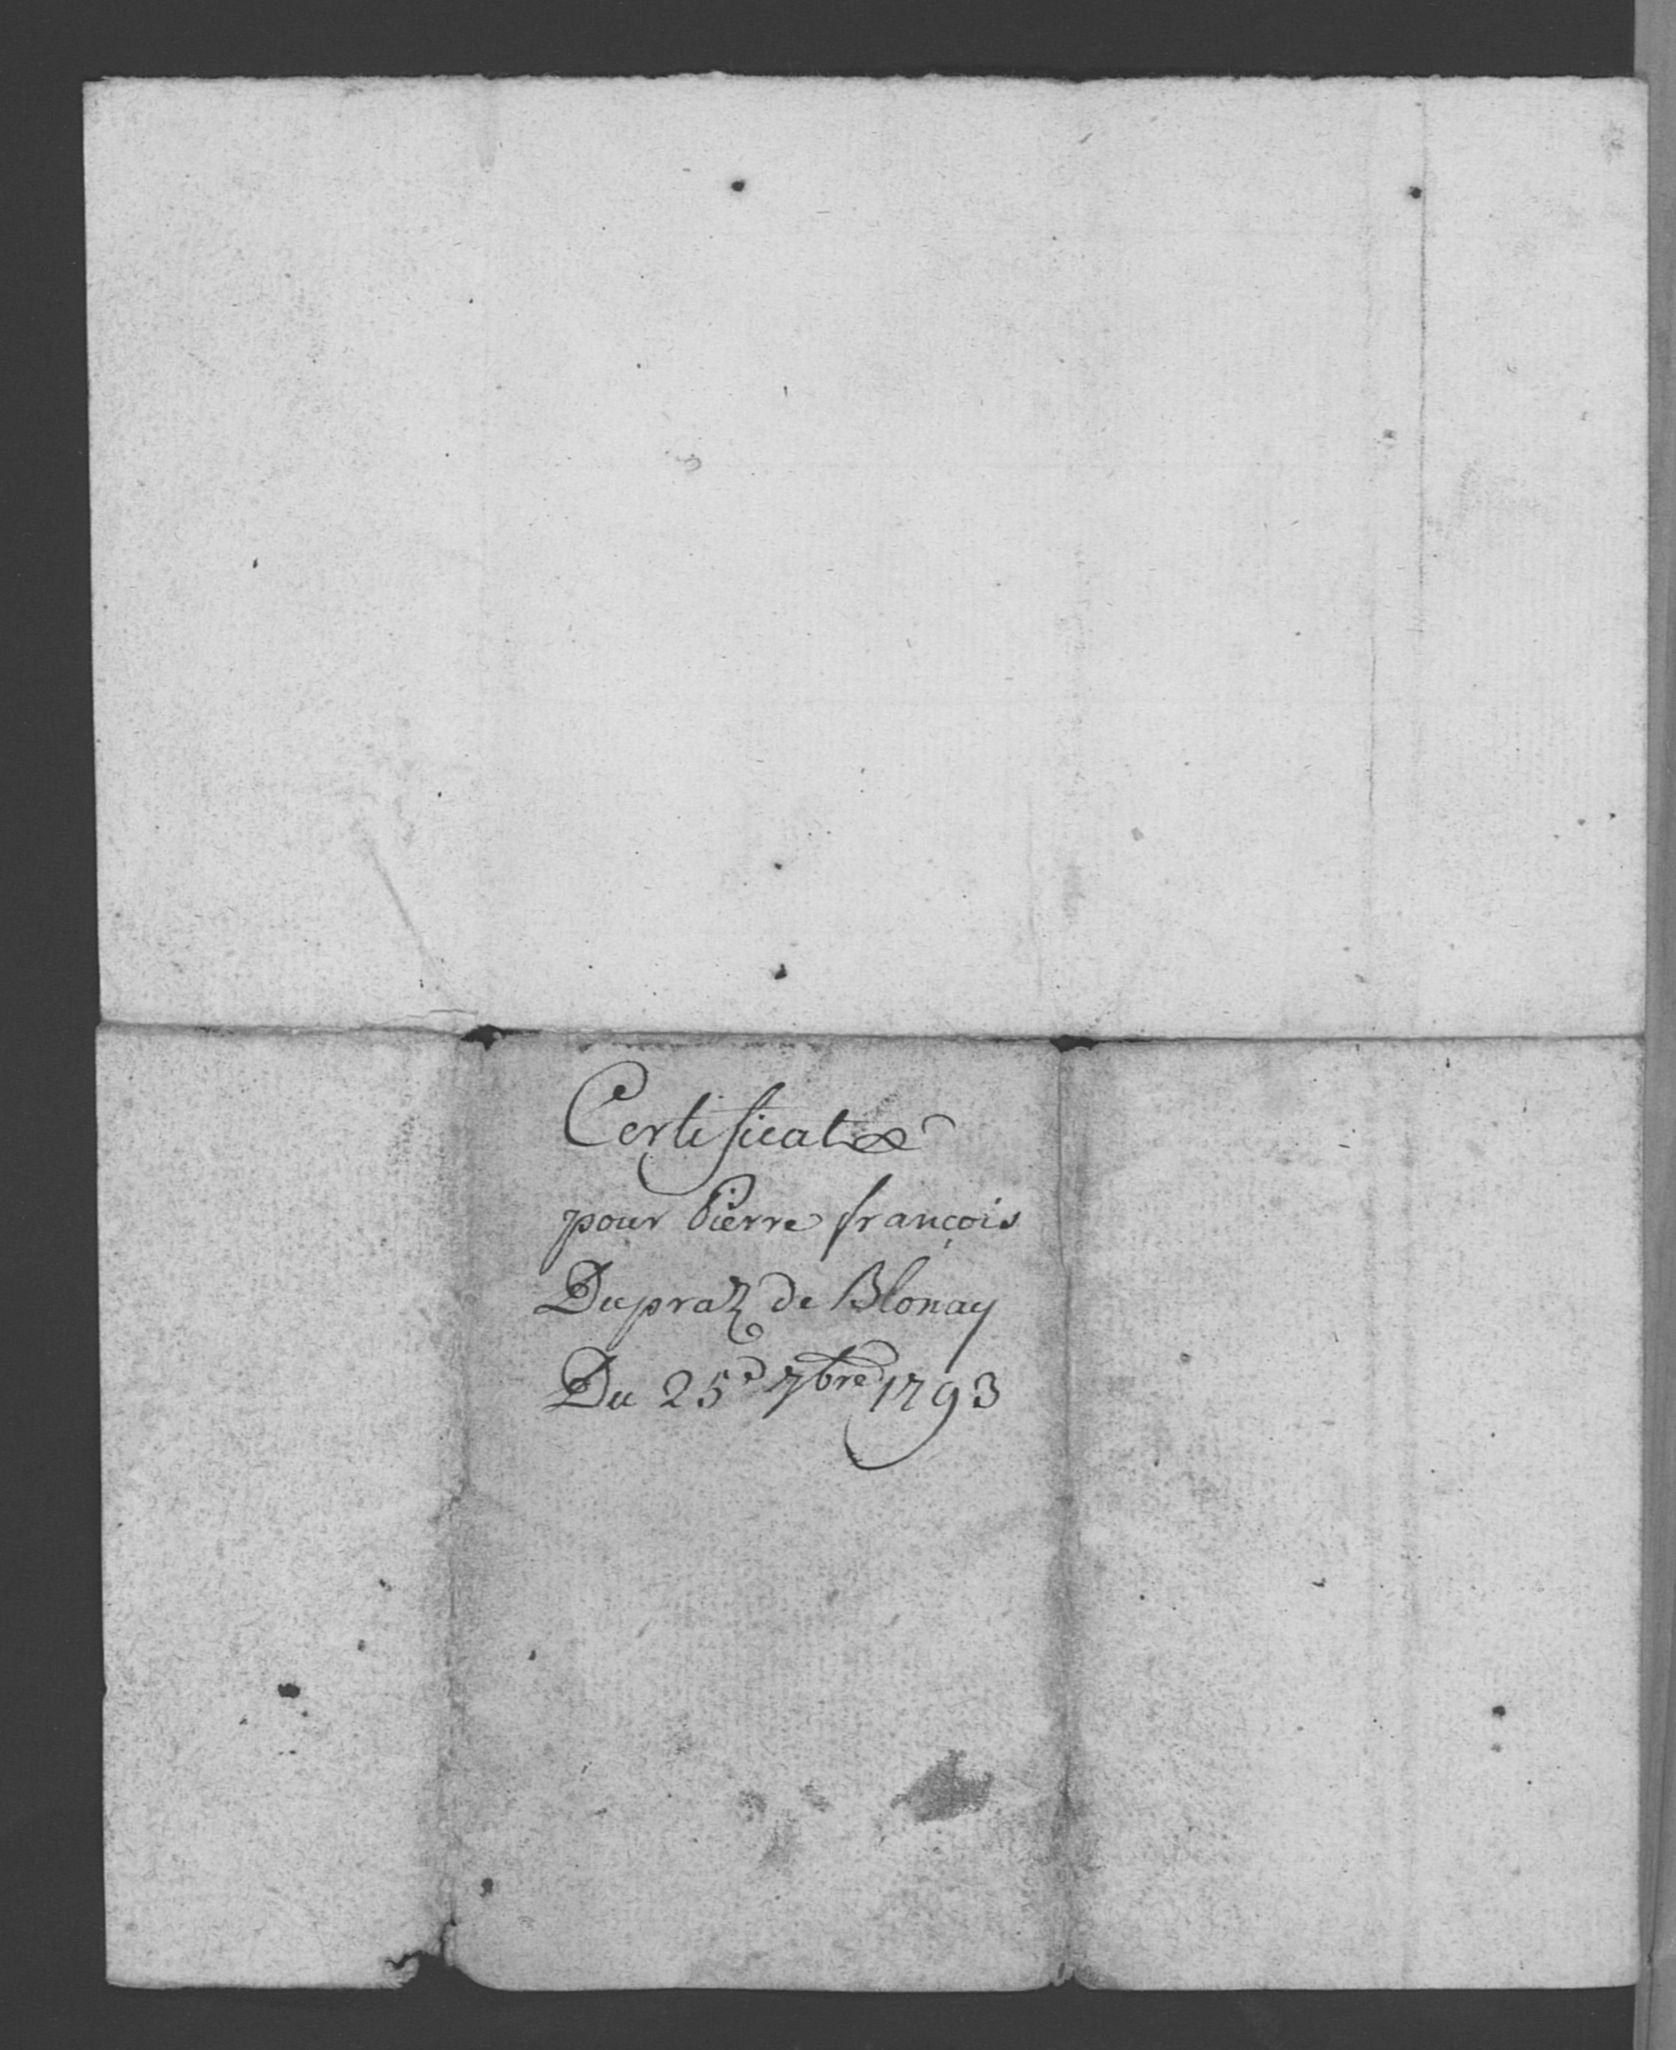 Certificat
pour Pierre françois
Dupraz de Blonay
Du 25e 7bre 1793